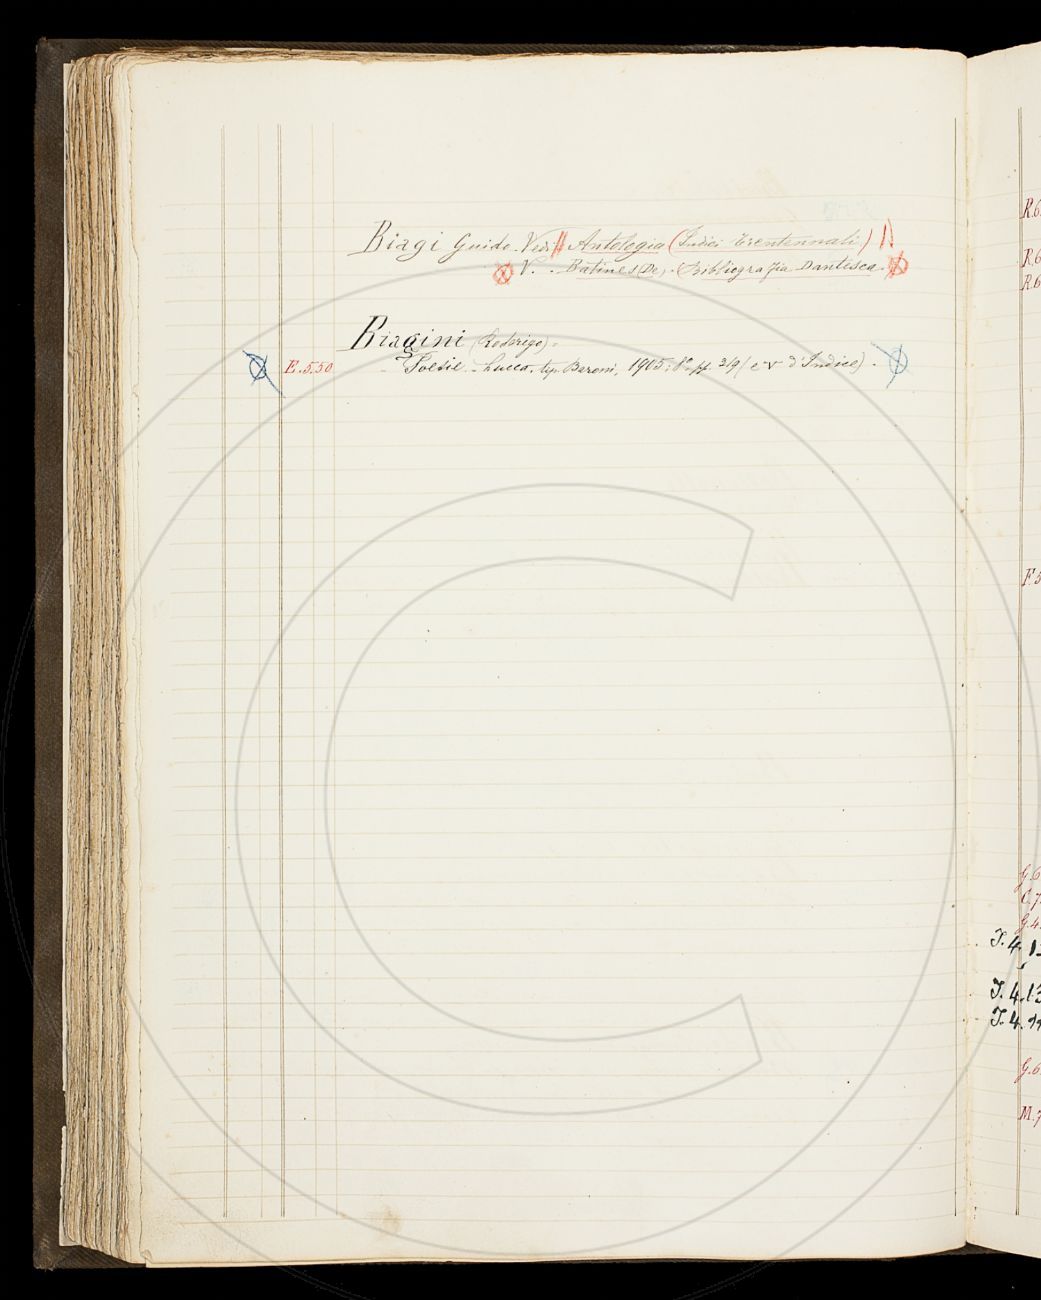 Biagi Guido. Vedi Antologia (Indici Trentennali)
V. Batines (De). (Bibliografia Dantesca.
Biagini (Rodrigo).
E.5.50 Poesie. Lucca, tip. Baroni, 1905; 8º pp. 319 (e V d'Indice).
R.6
R.6
R.6
F.5
G.6
G.4
I.4.13
I.4.
G.6
M.7